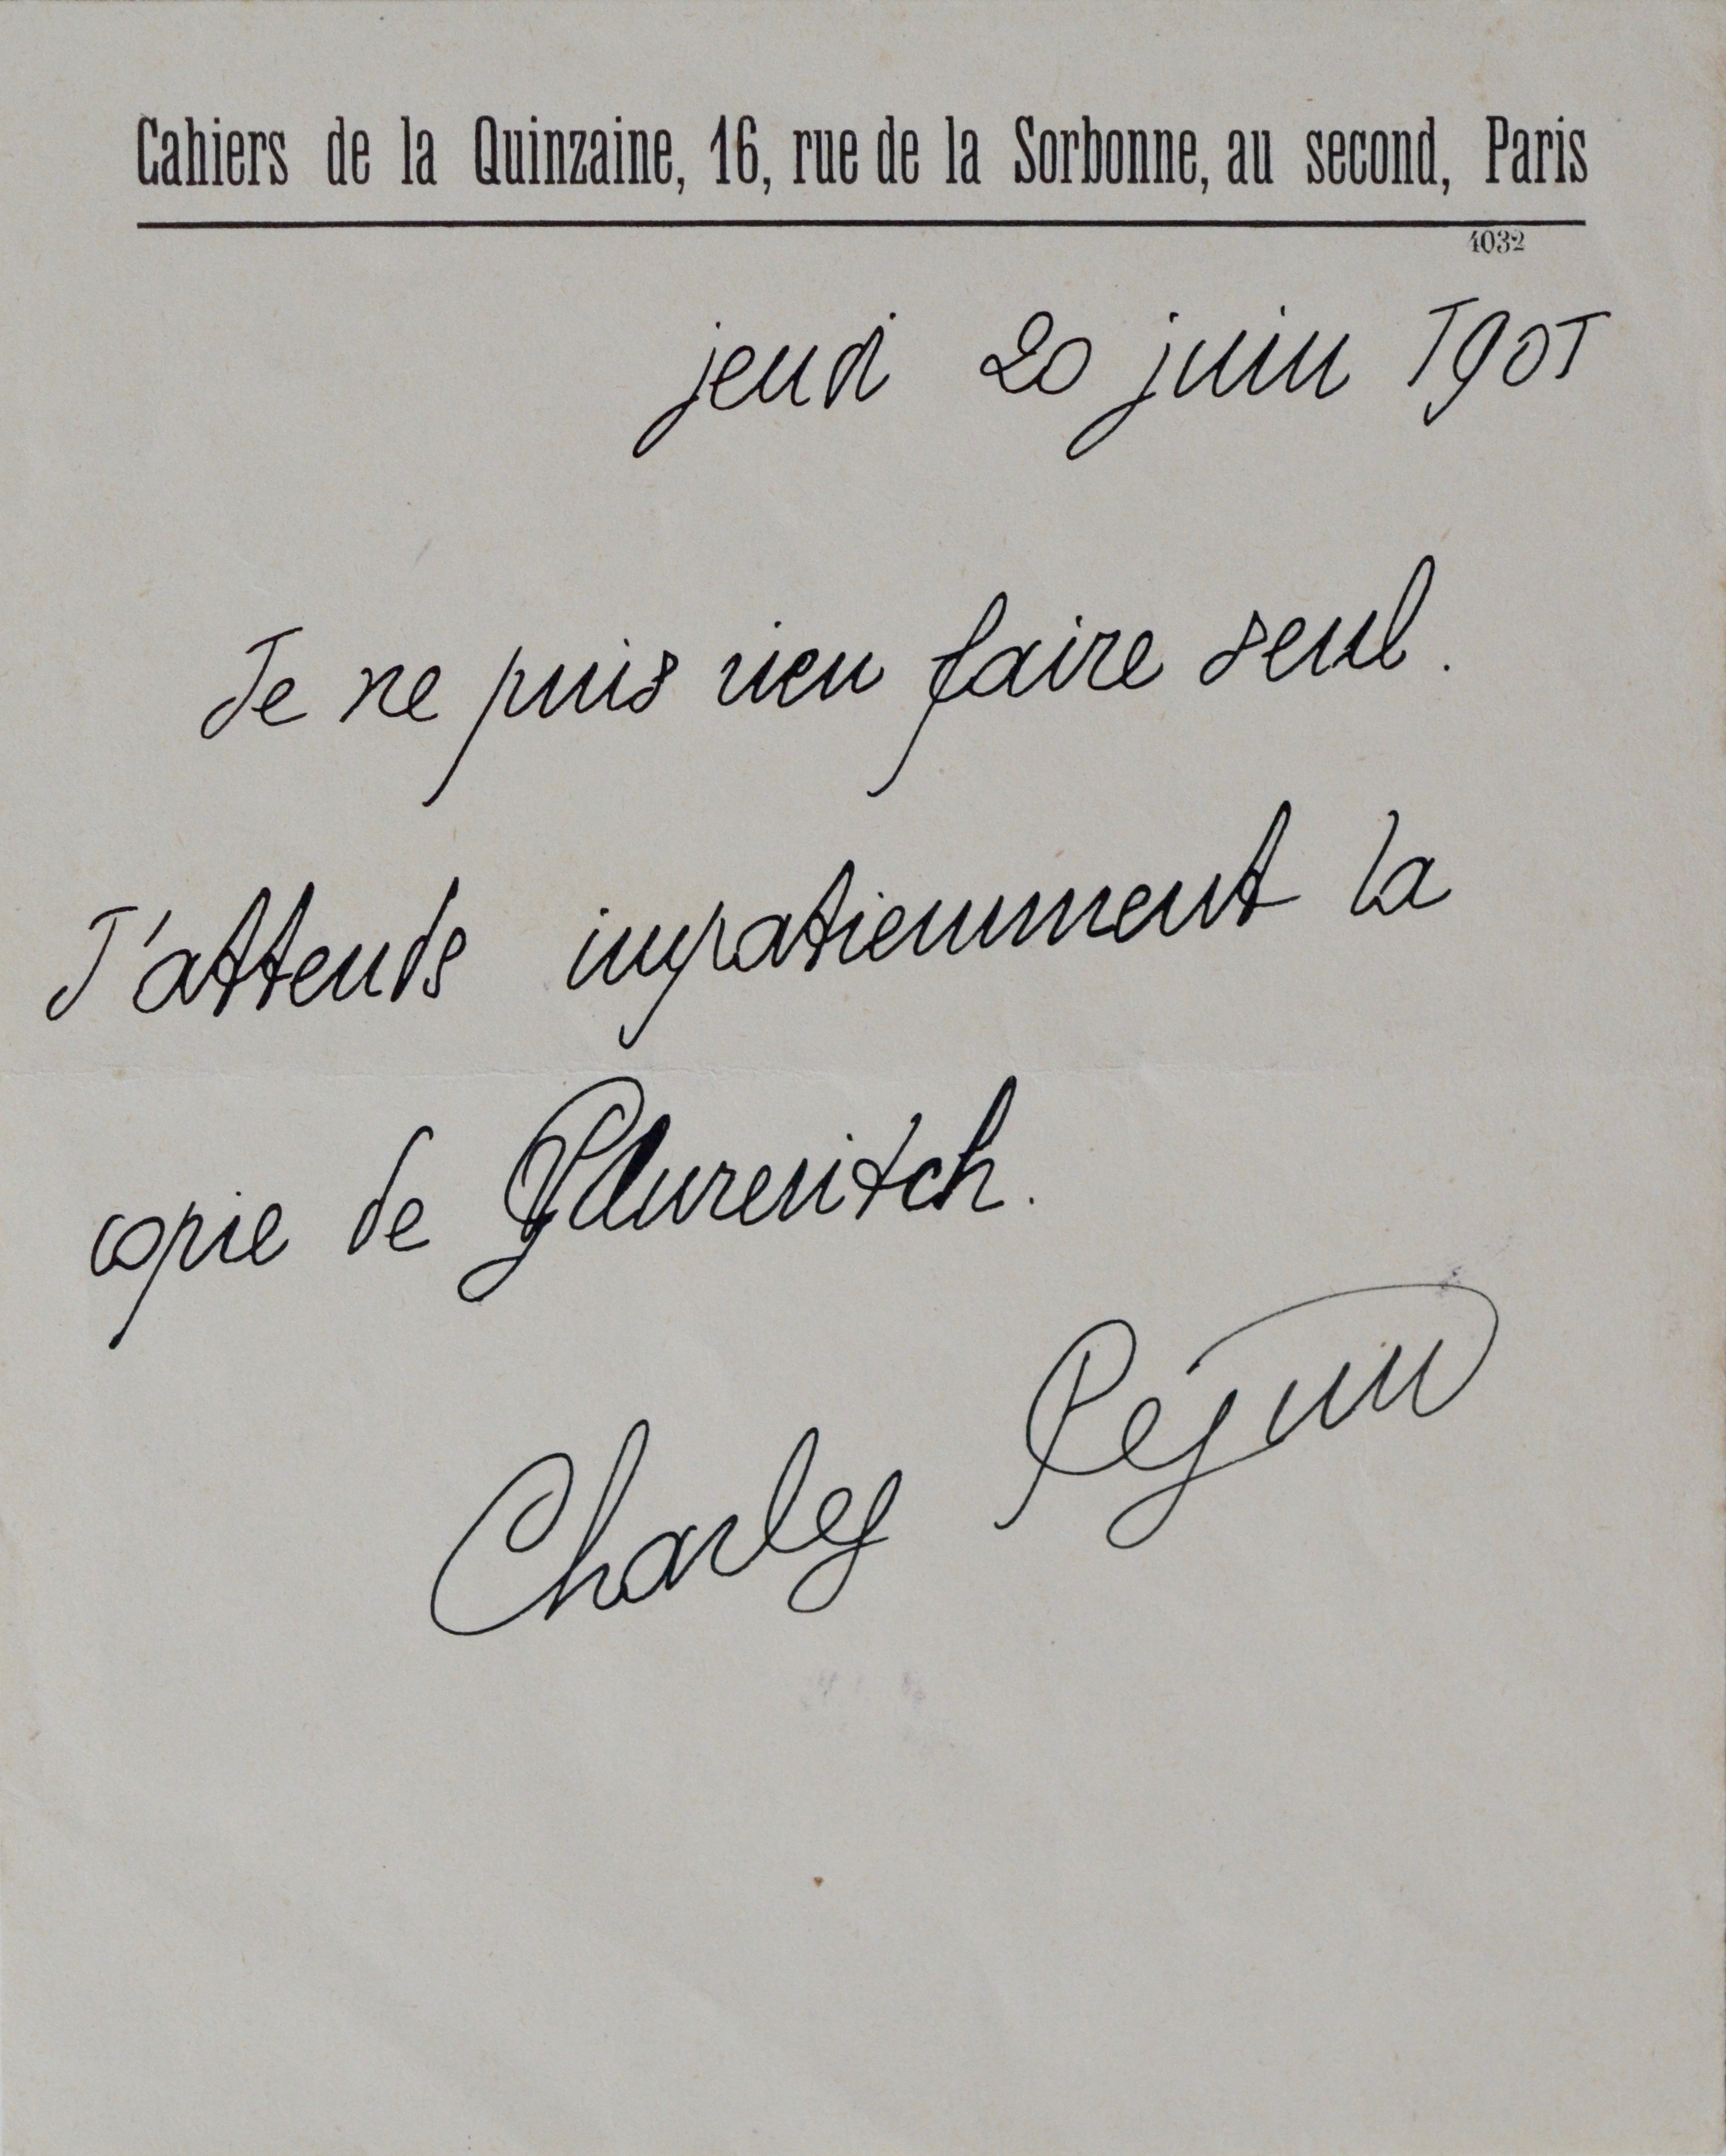 Cahiers de la Quinzaine, 16, rue de la Sorbonne, au second, Paris
4032
jeudi 20 juin 1901
Je ne puis rien faire seul.
J'attends impatiemment la
copie de
Charles Péguy